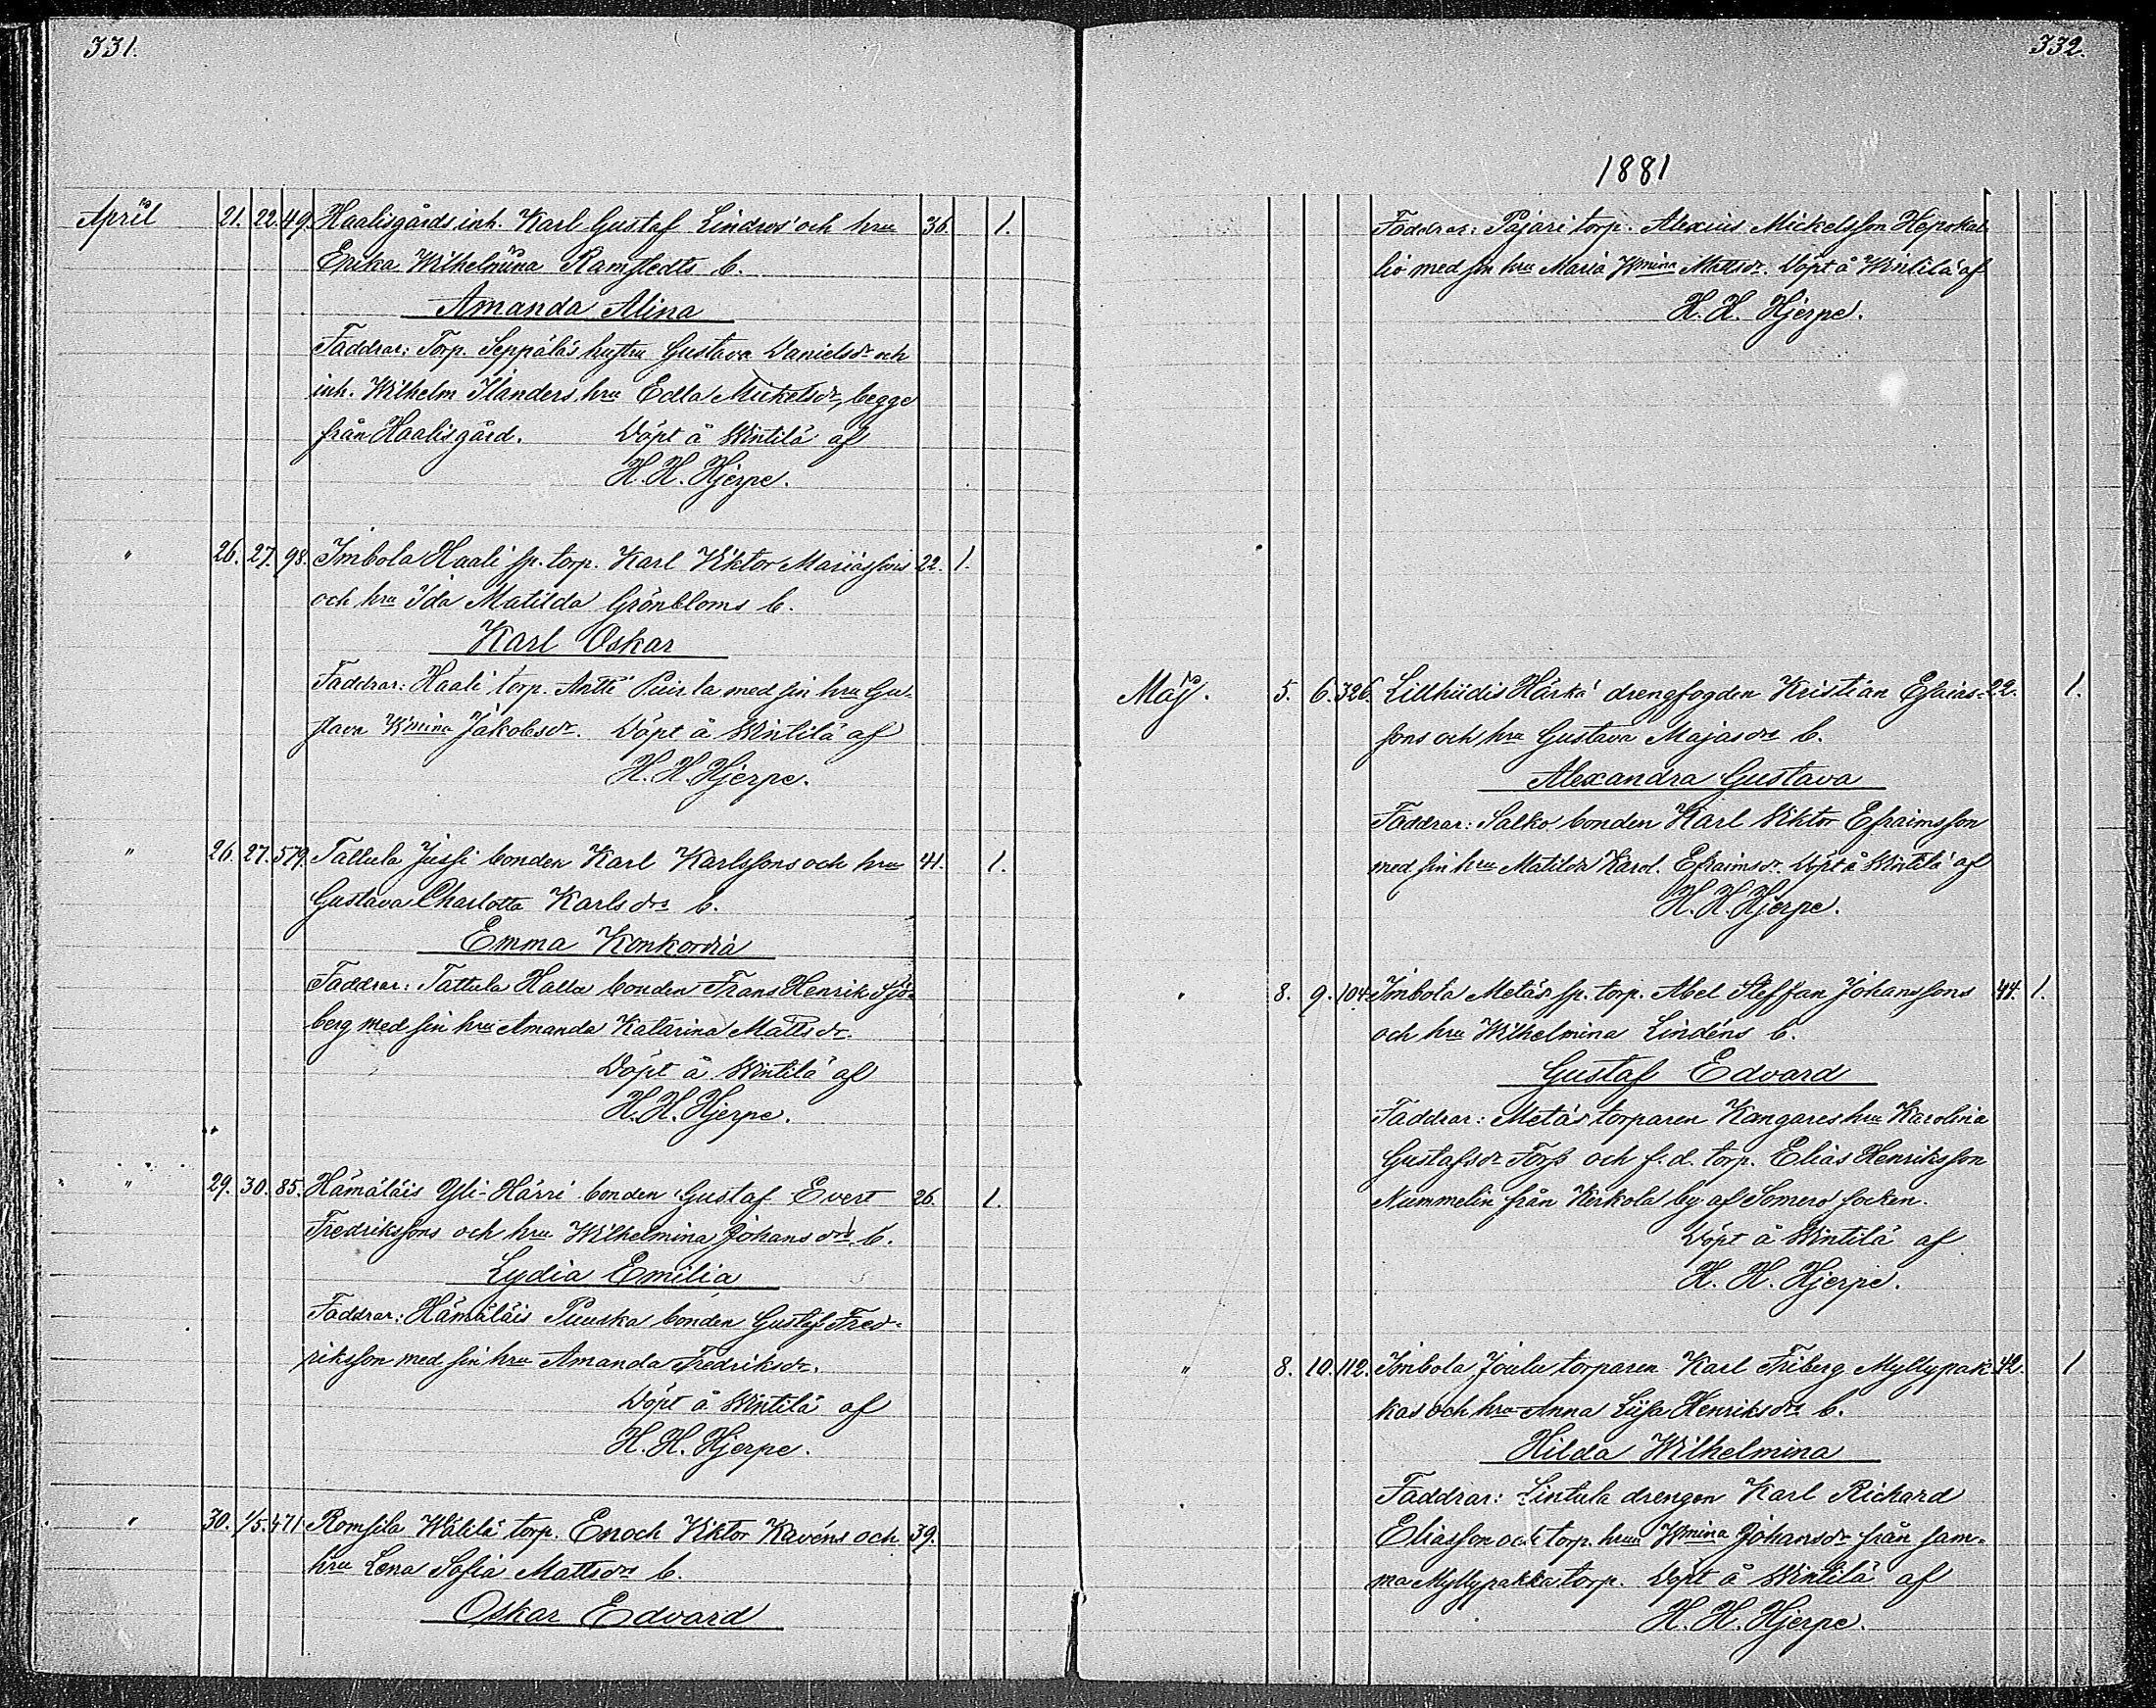 331.
April 21. 22. 49. Haalisgårds inh. Karl Gustaf Lindros och hru 36. 1.
Erika Wilhelmina Ramstedts b.
Amanda Alina
Faddrar: Torp. Seppäläs hustru Gustava Danielsdr och
inh. Wilhelm Ilanders hru Edla Mickelsdr, begge
från Haalisgård. Döpt å Wintilä af
H. H. Hjerpe.
" 26. 27. 98. Imbola Haali sp. torp. Karl Viktor Mariassons 22. 1.
och hru Ida Matilda Grönbloms b.
Karl Oskar
Faddrar: Haali torp. Antti med sin hru Gu-
stava Wmina Jakobsdr. Döpt å Wintilä af
H. H. Hjerpe.
" 26. 27. 579. Tattula Jussi bonden Karl Karlssons och hru 41. 1.
Gustava Charlotta Karlsdrs b.
Emma Konkordia
Faddrar: Tattula Halla bonden Frans Henrik Sjö-
berg med sin hru Amanda Katarina Mattsdr.
Döpt å Wintilä af
H. H. Hjerpe.
" 29. 30. 85. Hämäläis Yli-Härri bonden Gustaf Evert 26. 1.
Fredrikssons och hru Wilhelmina Johansdrs b.
Lydia Emilia
Faddrar: Hämäläis Puuska bonden Gustaf Fred-
riksson med sin hru Amanda Fredriksdr.
Döpt å Wintilä af
H. H. Hjerpe.
" 30. 1/5. 471 Romsila Wälilä torp. Enoch Viktor Kavéns och 39.
hru Lena Sofia Mattsdrs b.
Oskar Edvard
332.
1881
Faddrar: Pajari torp. Alexius Mickelsson Hepokal-
lio med sin hru Maria Wmina Mattsdr. Döpt å Wintilä af
H. H. Hjerpe.
Maj. 5. 6. 326. Lillhiidis Härkä drengfogden Kristian Esaias- 22. 1.
sons och hru Gustava Majasdrs b.
Alexandra Gustava
Faddrar: Salko bonden Karl Viktor Efraimsson
med sin hru Matilda Karol. Efraimsdr. Döpt å Wintilä af
H. H. Hjerpe.
" 8. 9. 104. Imbola Metäs sp. torp. Abel Steffan Johanssons 44. 1.
och hru Wilhelmina Lindéns b.
Gustaf Edvard
Faddrar: Metäs torparen Kangares hru Karolina
Gustafsdr Fors och f. d. torp. Elias Henriksson
Nummelin från Kerkola by af Somero socken.
Döpt å Wintilä af
H. H. Hjerpe.
" 8. 10. 112. Imbola Joulu torparen Karl Friberg Myllypak- 42. 1
kas och hru Anna Liisa Henriksdrs b.
Hilda Wilhelmina
Faddrar: Lintula drengen Karl Richard
Eliasson och torp. hru Wmina Johansdr från sam-
ma Myllypakka torp. Döpt å Wintilä af
H. H. Hjerpe.